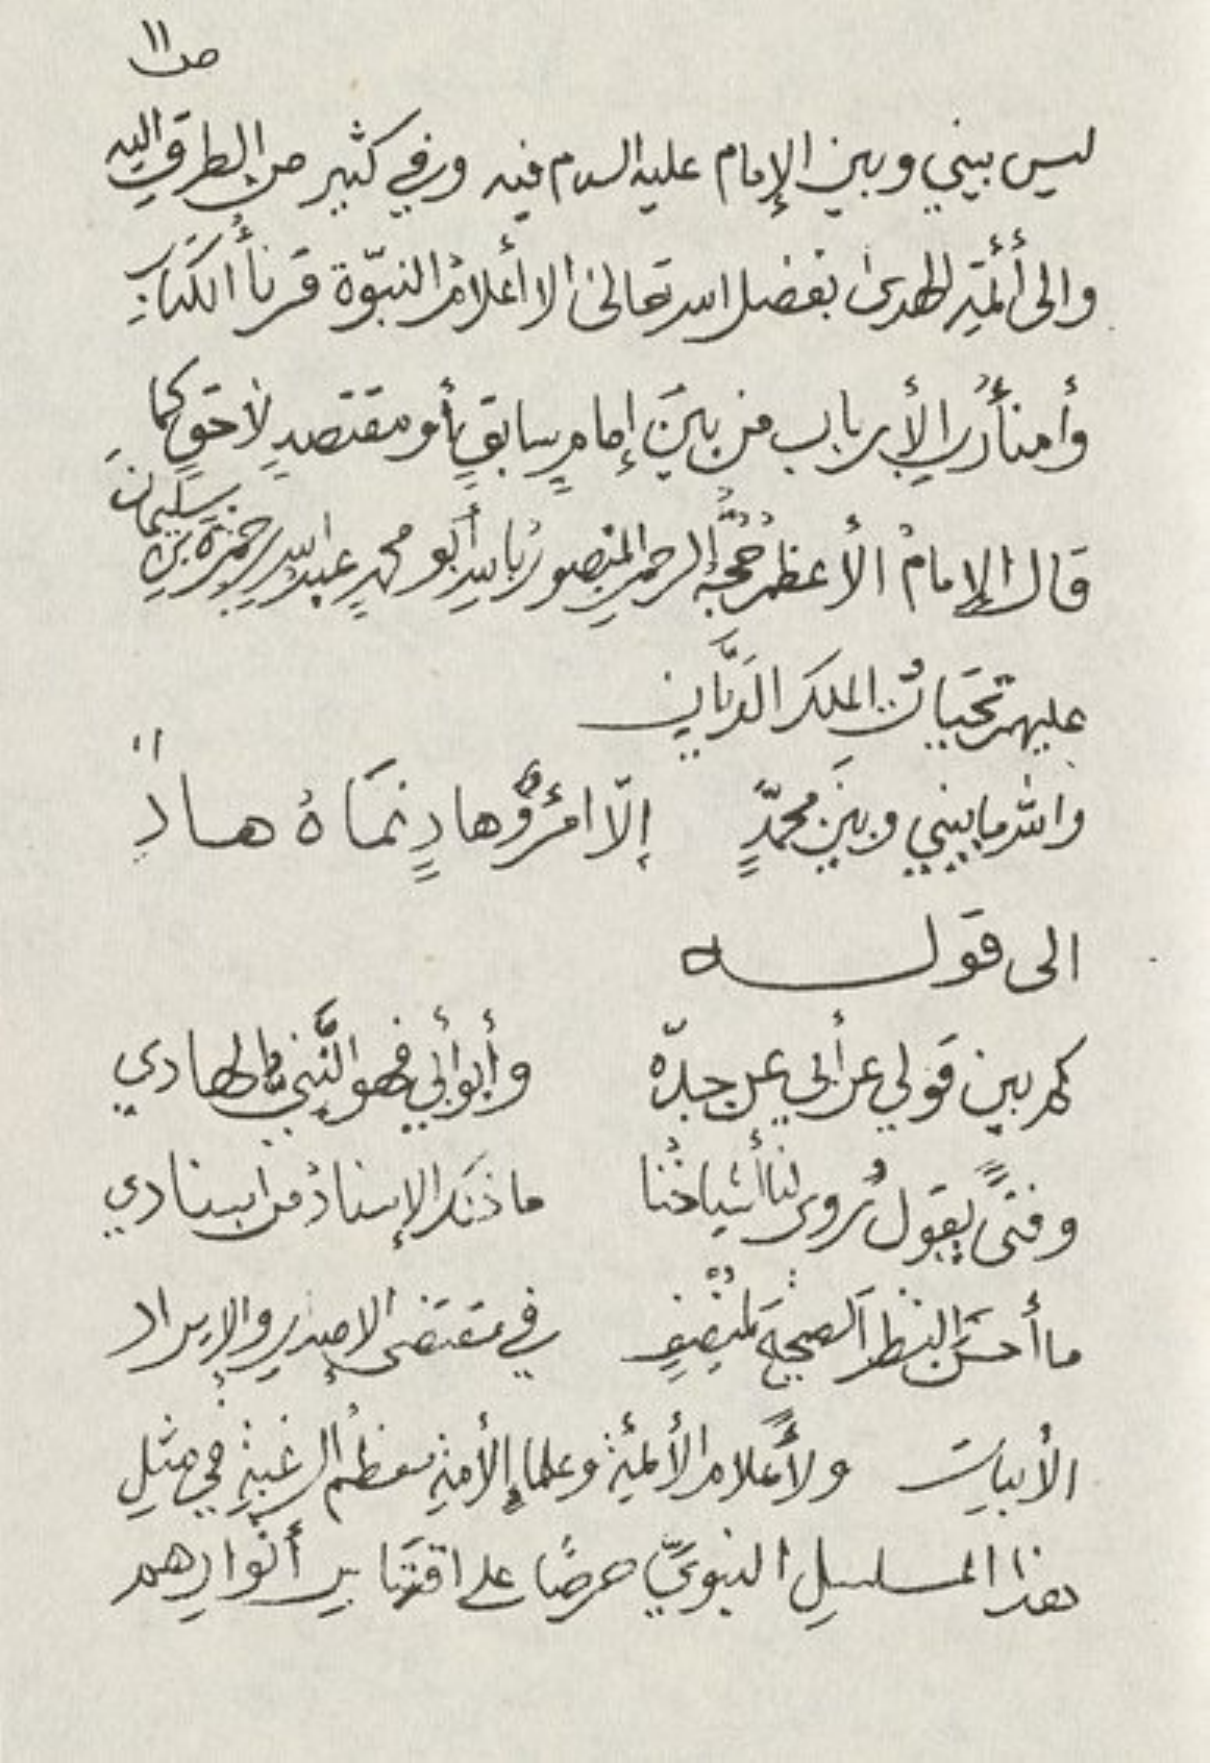 ص ١١
ليس بيني وبين الإمام عليه السلام فيه وفي كثير من الطرق إليه
والى أئمّةِ الهدىٰ بفضل الله تعالىٰ الا أعلامُ النبوّة قرناءُ الكتابِ
وأمناءُ ربِّ الأرباب من بينَ إمامٍ سابقٍ أو مقتصدٍ لاحقٍ كما
قال الإمامُ الأعظمُ حُجّةُ الرحمنِ المنصورُ باللهِ أبو محمدٍ عبدُ اللهِ بنُ حمزةَ بنِ سليمانَ
عليهم تحياتُ الملكِ الديَّانِ
واللهِ ما بيني وبينَ محمّدٍ إلّا امرُؤٌ هادٍ نمَاهُ هادِ
الى قوله
كم بين قولي عن أبي عن جدّه وأبو أبي فهو النَّبيُّ الهادي
وفتىً يقولُ رَوى لنا أشياخُنا ما ذلكَ الإسنادُ من إسنادي
ما أحسنَ النظرَ الصحيحَ لمنصفٍ في مقتضى الإصدارِ والإيراد
الأبيات ولأعلامِ الأئمّةِ وعلماءِ الأمّةِ معظمُ الرغبةِ في مثلِ
هذا المسلسلِ النبويِّ حرصًا على اقتباسِ أنوارِهم